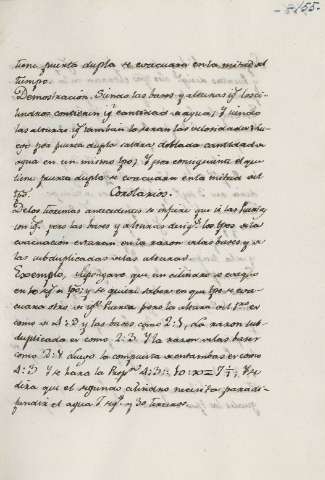 - 8/55 -
tiene puerta dupla se evacuara en la mitad del
tiempo.
Demostracion. Siendo las bases y alturas ig.s los ci-
lindros contienen ig.l cantidad de agua; Y siendo
las alturas ig.s tambien lo seran las velocidades
por puerta dupla saldra doblada cantidad de
agua en un mismo tpo; Y por consiguiente el que
tiene puerta dupla se evacuara en la mitad del
tpo.
Corolarios.
De los teoremas antecedentes se infiere que si las Puertas
son ig.s pero las bases y alturas desig.s los tpos de la
evacuacion estaran en la razon de las bases y de
las subduplicadas de las alturas.
Exemplo, supongase que un cilindro se evacue
en tpo; y se quiere saber en que tpo se eva-
cuara otro de ig.l Puerta pero la altura del
como 4:2 y las bases como 2:3, La razon sub-
duplicada es como 2:3 Y la razon de las bases
como 2: luego la compuesta de entrambas es como
4:3 Y se hara la Prop.on 4:3::10:x=7 1/2; Y se
dira que el segundo cilindro necesita para
pendir el agua 7 seg.s y 30 terceros.